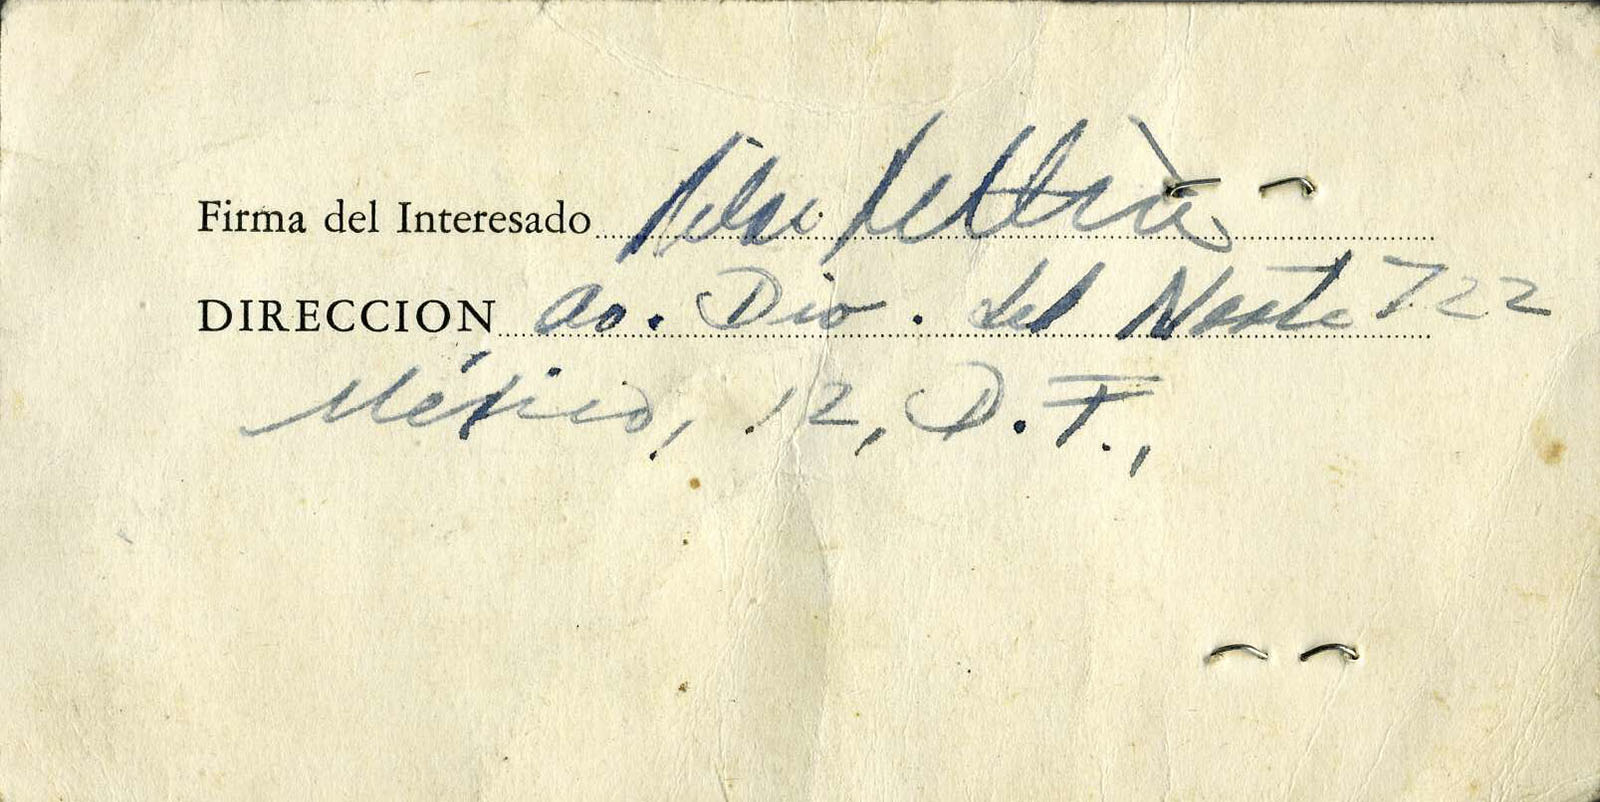 Firma del Interesado
DIRECCION Av. Div. del Norte 722
México, 12, D.F.,